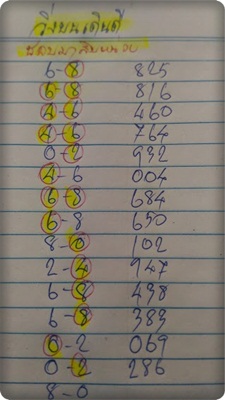 วิ่งบนเดินดี
6-8 825
6-8 816
4-6 460
4-6 764
0-2 932
4-6 004
6-8 684
6-8 650
8-0 102
2-4 947
6-8 438
6-8 383
0-2 069
0-2 286
8-0